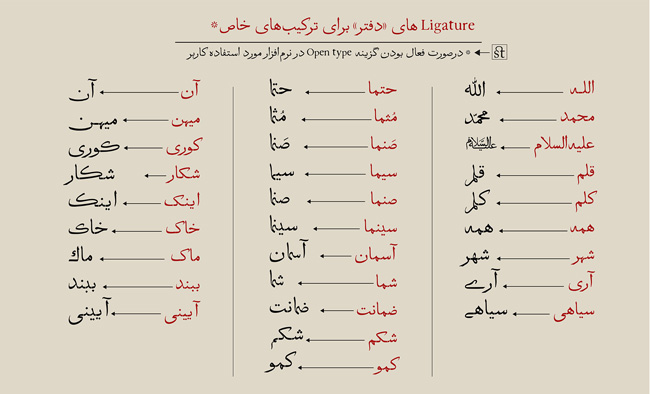 Ligature های «دفتر» برای ترکیب‌های خاص*
st ← * درصورت فعال بودن گزینه Open type در نرم‌افزار مورد استفاده کاربر
اللـه ← الله
محمد ← محمّد
علیه‌السلام ← علیه‌السلام
قلم ← قلم
کلم ← کلم
همه ← همه
شهر ← شهر
آری ← آری
سیاهی ← سیاهی
حتما ← حتما
مُثما ← مُثما
صَنما ← صَنما
سیما ← سیما
صنما ← صنما
سینما ← سینما
آسمان ← آسمان
شما ← شما
ضمانت ← ضمانت
شکم ← شکم
کمو ← کمو
آن ← آن
میهن ← میهن
کوری ← کوری
شکار ← شکار
اینک ← اینک
خاک ← خاک
ماک ← ماک
ببند ← ببند
آیینی ← آیینی